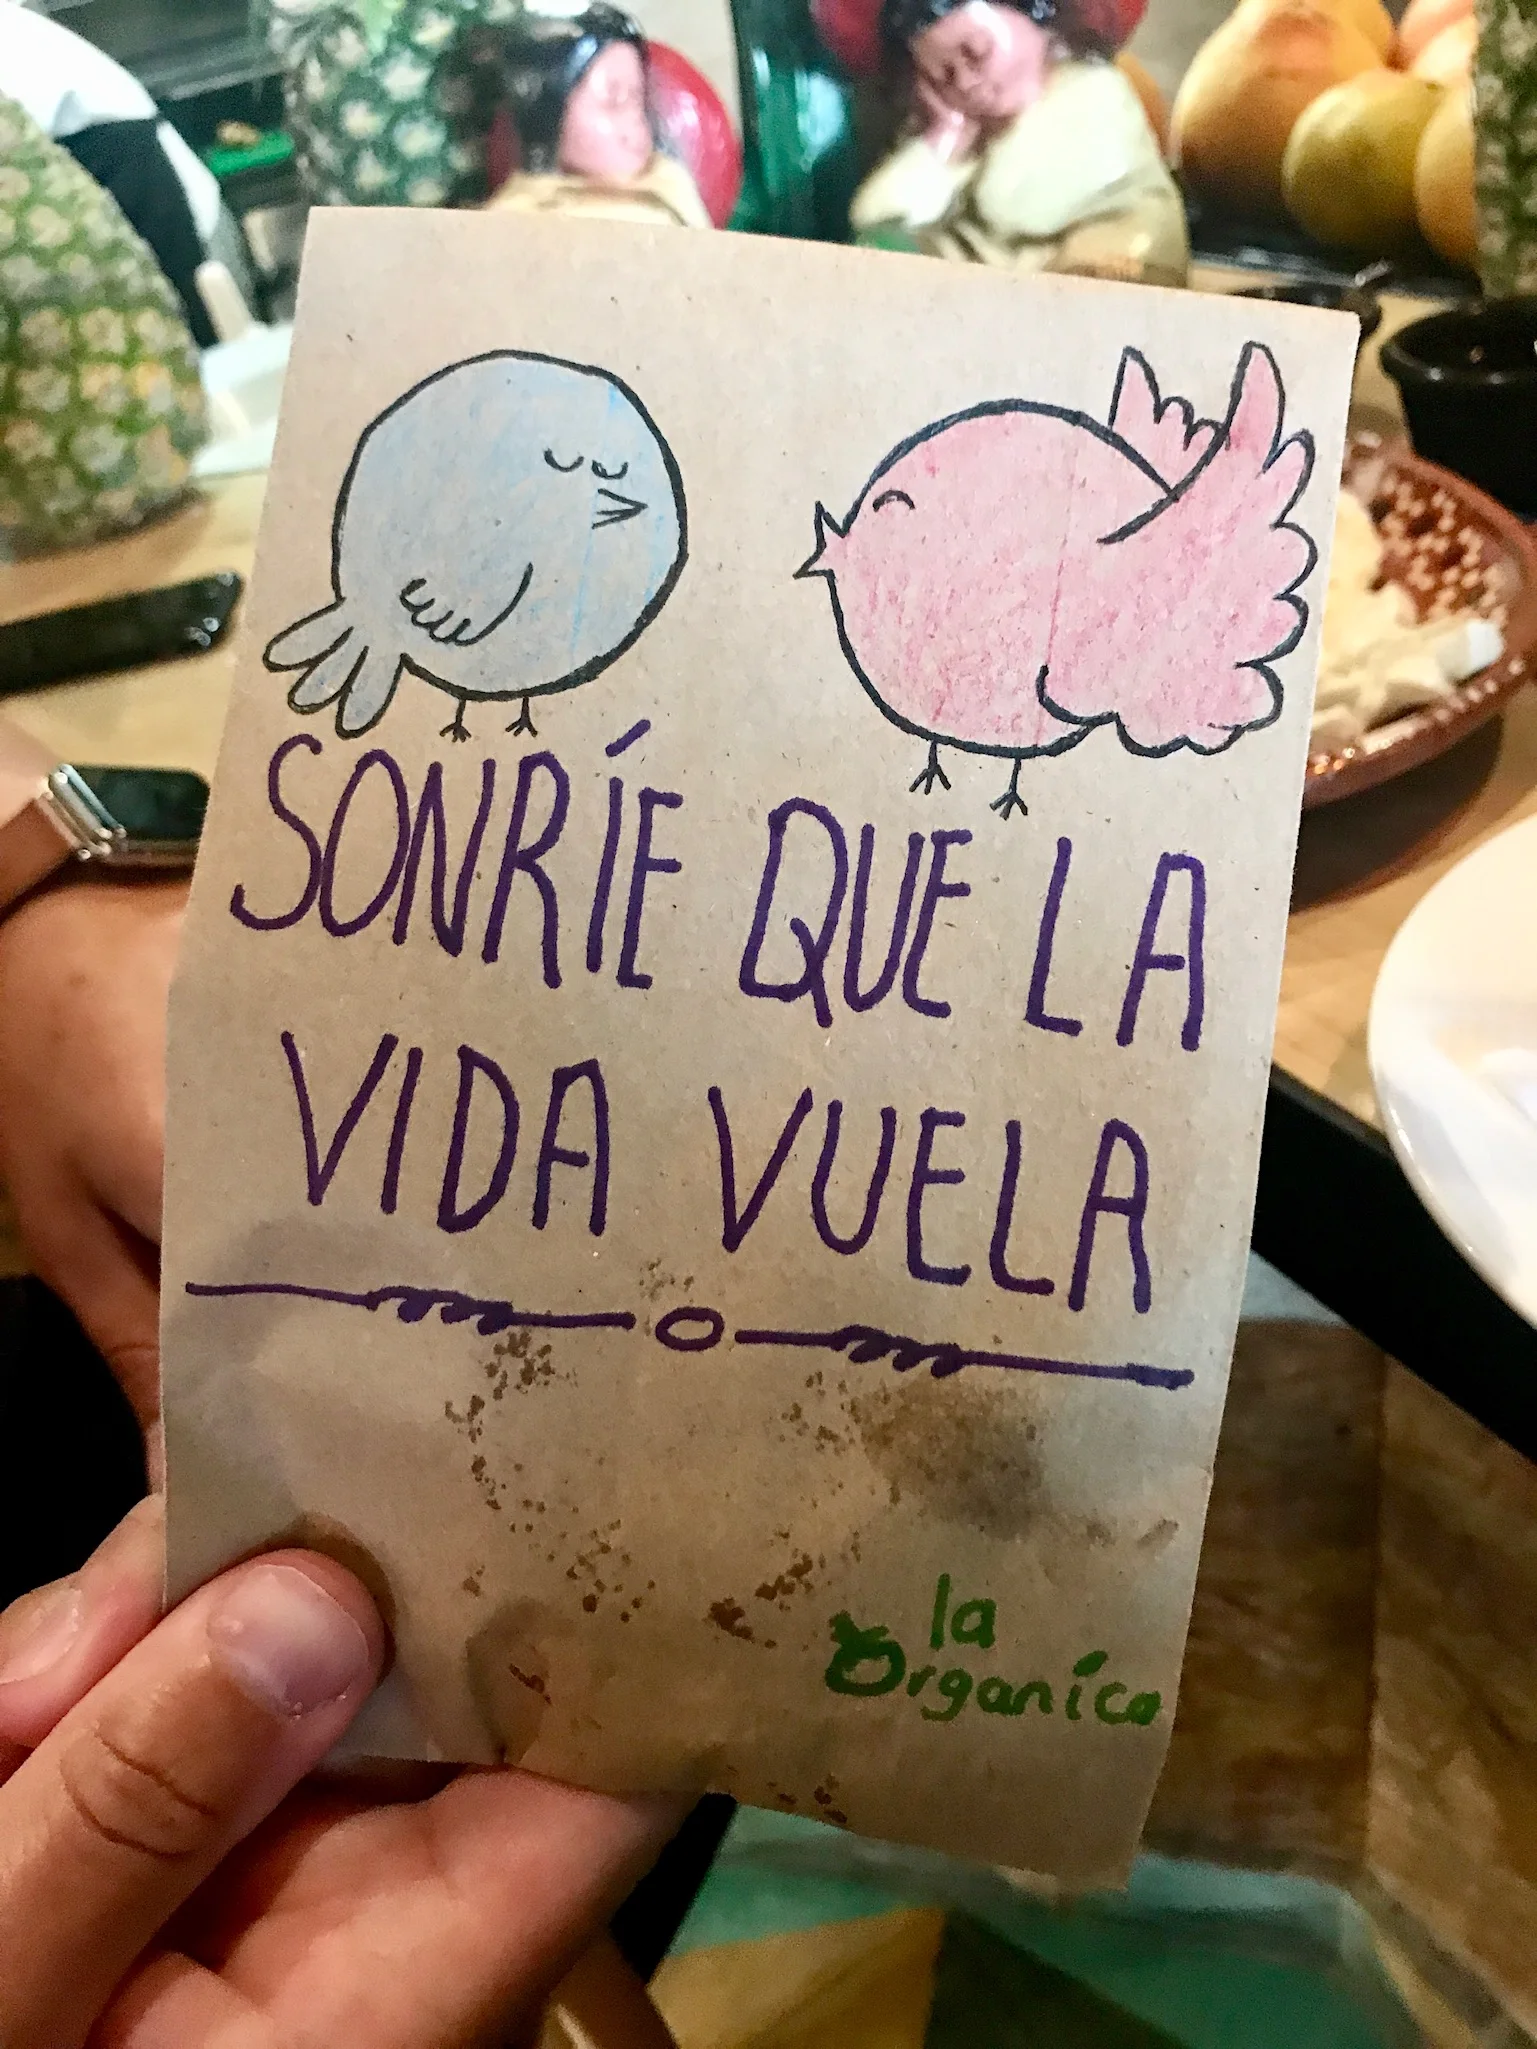 SONRÍE QUE LA
VIDA VUELA
la
Orgánica